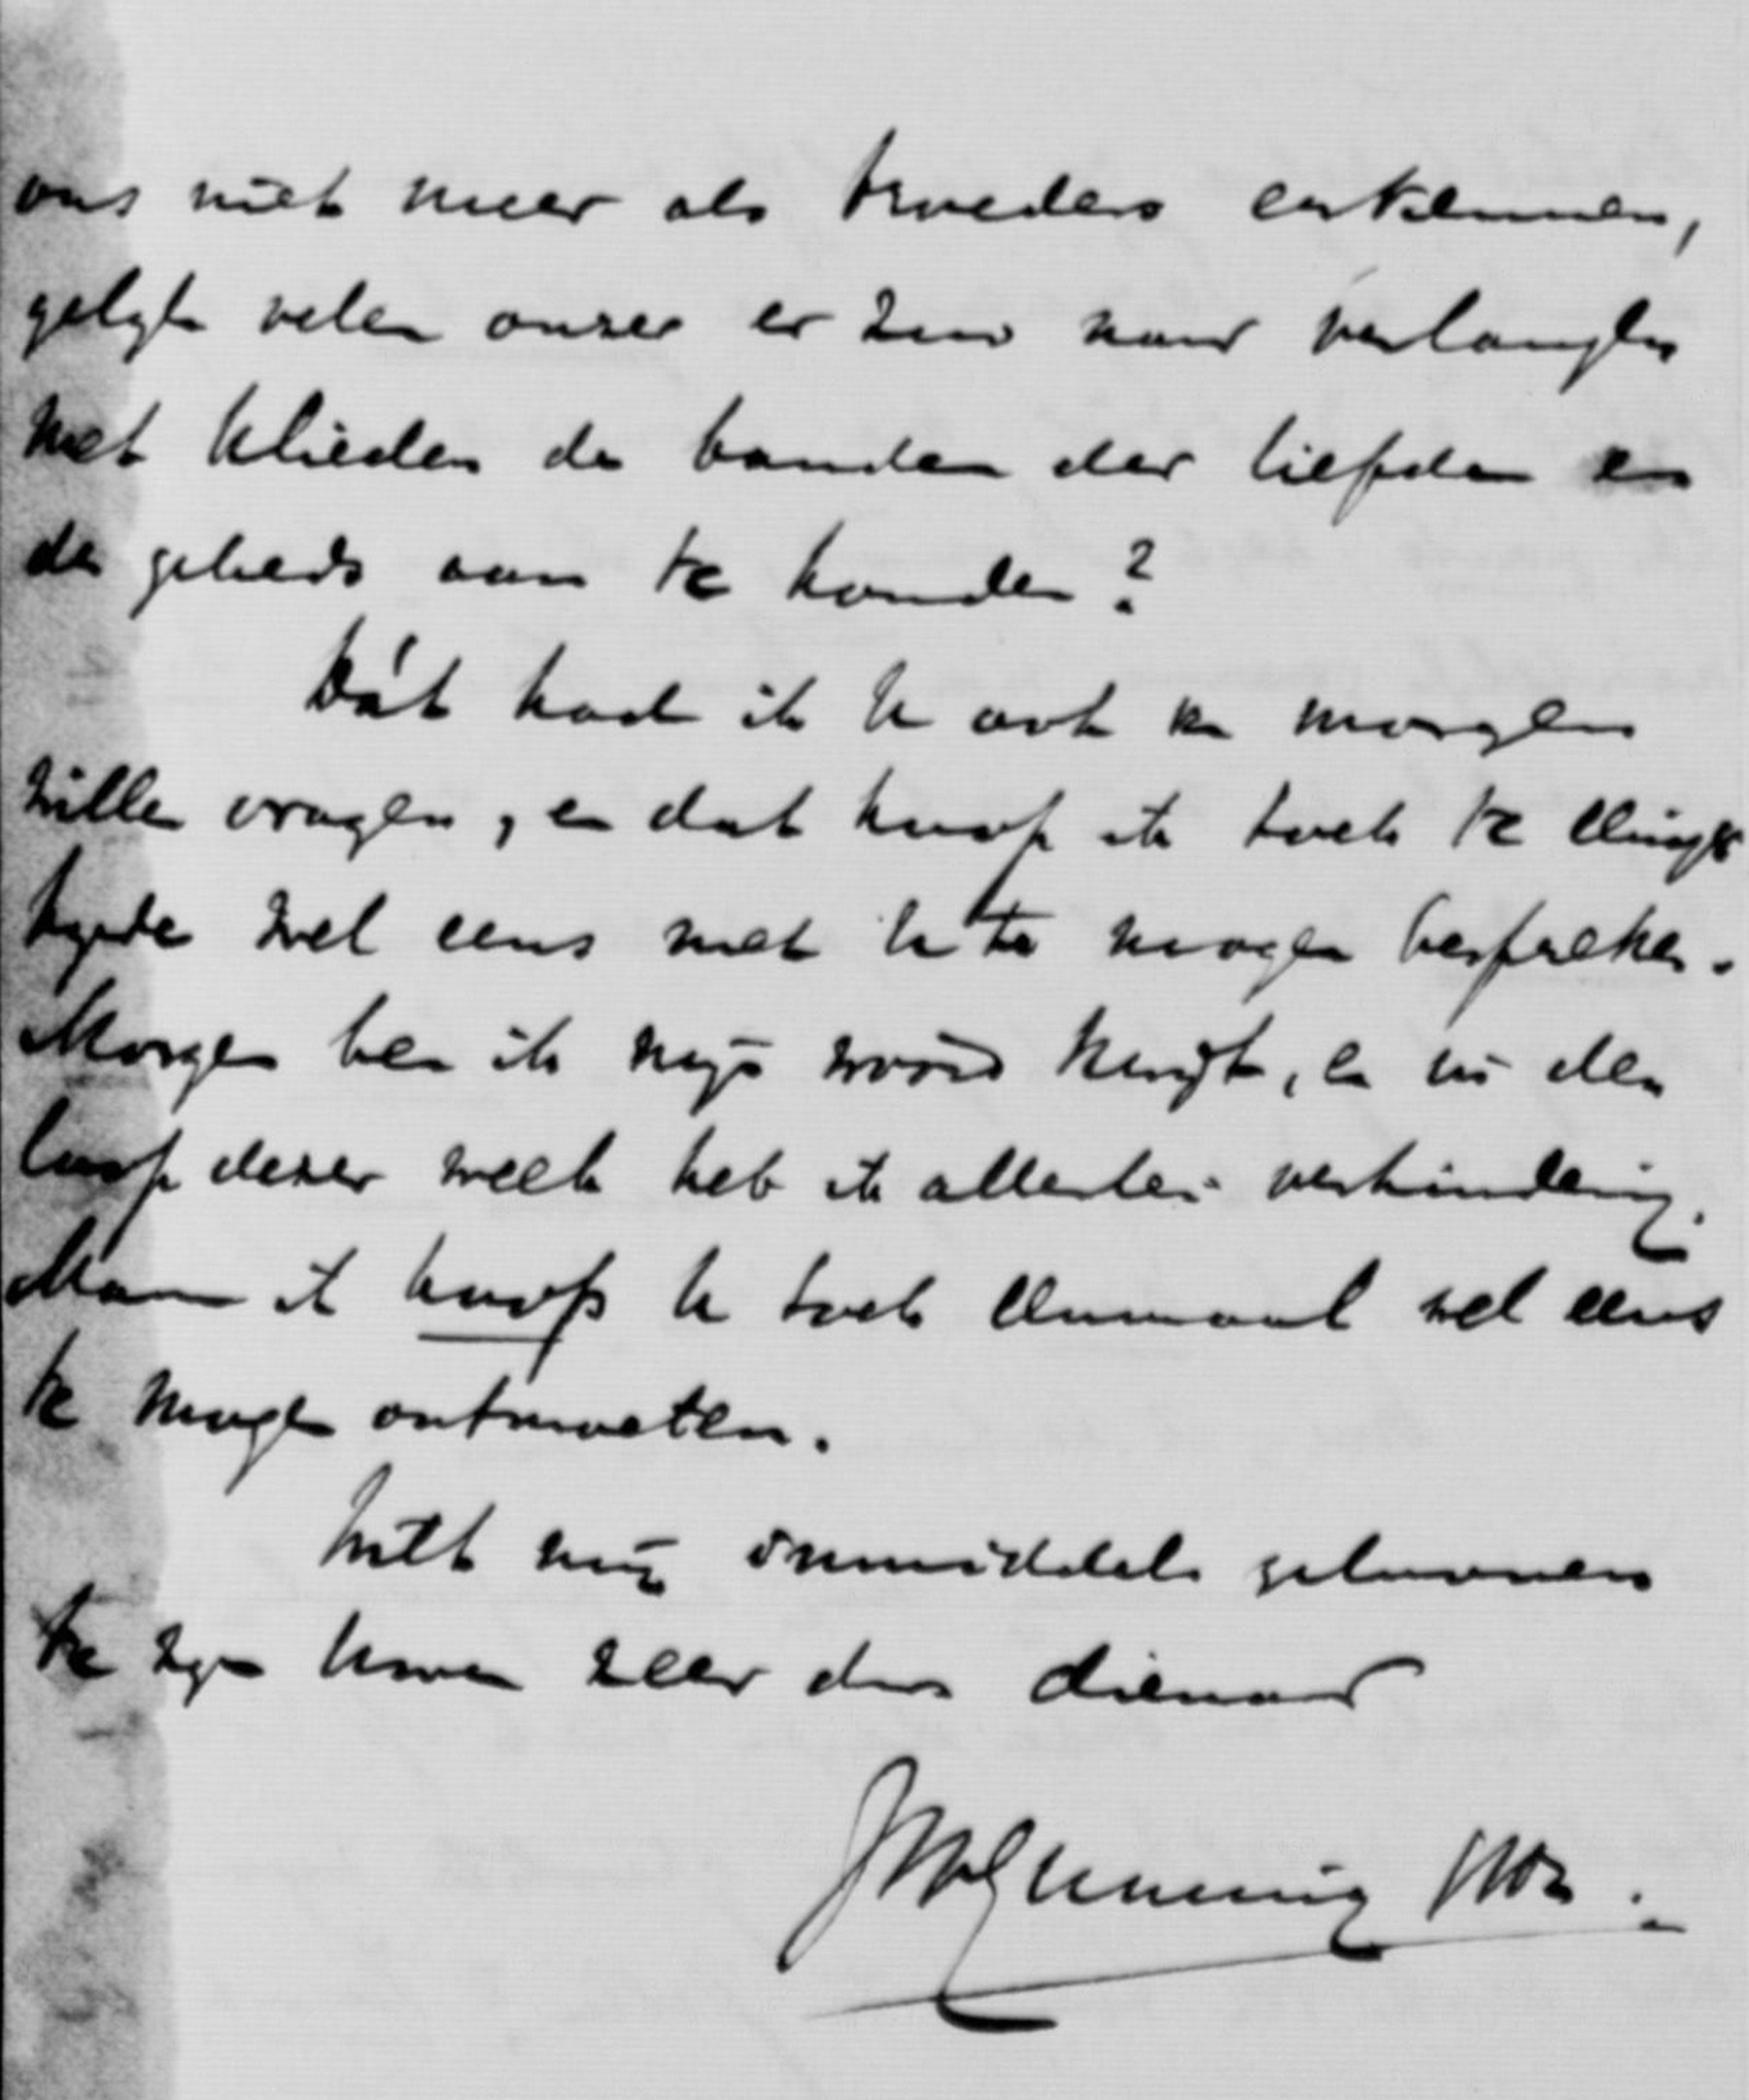 ons niet meer als broeders erkennen,
gelijk velen onzer er zeer naar verlangen
met Ulieden de banden der liefde en
des gebeds aan te houden?
Dát had ik U ook morgen
willen vragen, en dat hoop ik toch te eeniger
tyde wel eens met U te mogen bespreken.
Morgen ben ik myn woord kwijt, en in den
loop dezer week heb ik allerlei verhindering.
Maar ik hoop U toch eenmaal wel eens
te mogen ontmoeten.
Wilt mij inmiddels gelooven
te zyn Uwen zeer dw dienaar
JHGunning JHz.